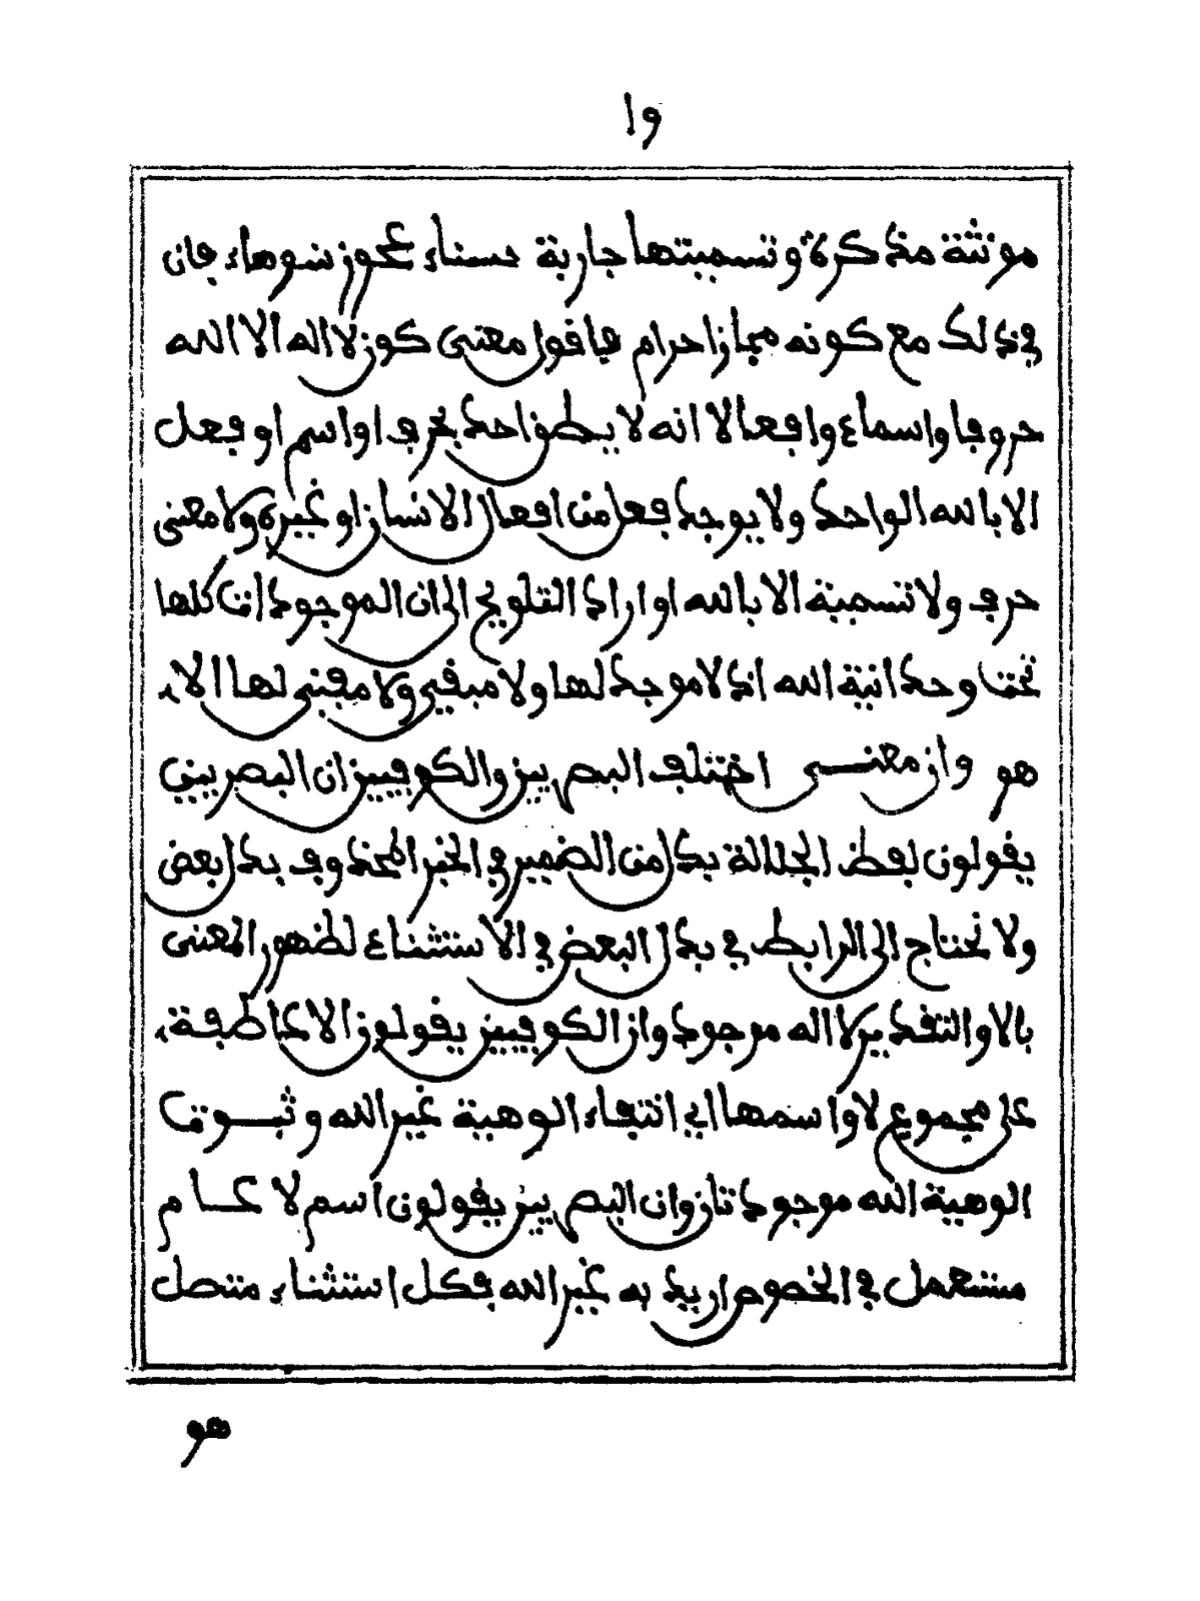 ١٩
مونثة مذكرة وتسميتها جارية حسناء عجوز شوهاء فان
في ذلك مع كونه مجازا حرام فاقول معنى كون لا اله الا الله
حروفا واسماء وافعالا انه لا ينطق احد بحرف او اسم او فعل
الا بالله الواحد ولا يوجد فعل من افعال الانسان او غيره ولا معنى
حرف ولا تسمية الا بالله او اراد التلويح الى ان الموجودات كلها
تحت وحدانية الله اذ لا موجد لها ولا مبقي ولا مفني لها الا
هو وان معنى اختلف البصريين والكوفيين ان البصريين
يقولون لفظ الجلالة بدل من الضمير في الخبر المحذوف بدل بعض
ولا تحتاج الى الرابط في بدل البعض في الاستثناء لظهور المعنى
بالا والتقدير لا اله موجود وان الكوفيين يقولون الا عاطفة
على مجموع لا واسمها اي انتفاء الوهية غير الله وثبوت
الوهية الله موجودتان وان البصريين يقولون اسم لا عام
مستعمل في الخصوص اريد به غير الله فكل استثناء متصل
هو